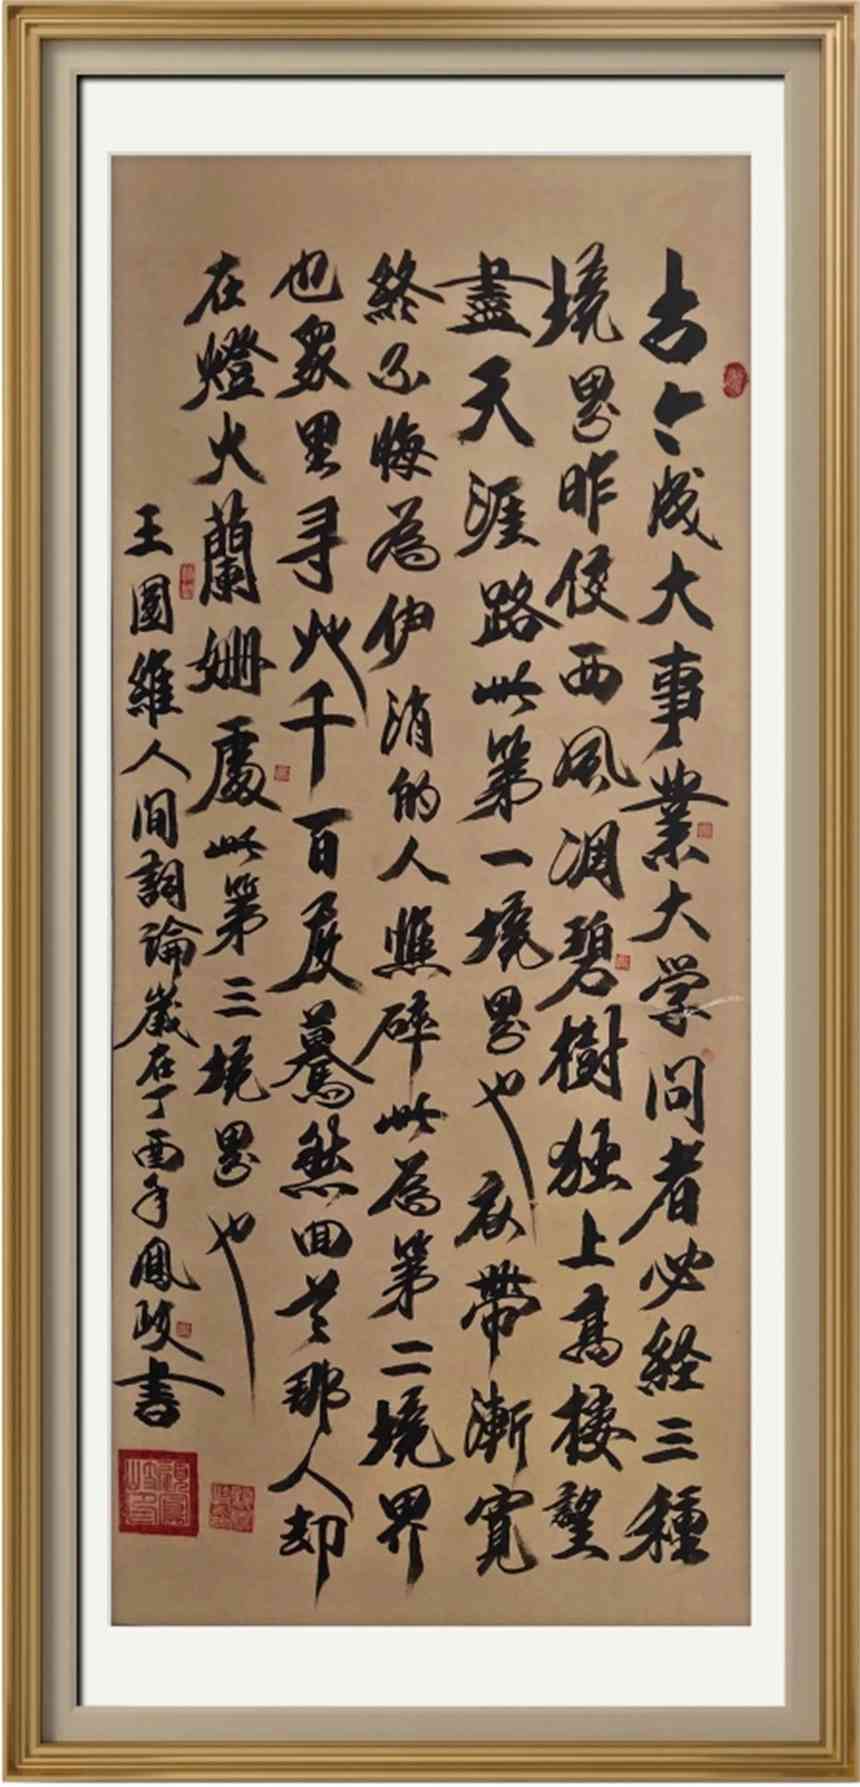 古今成大事業大学问者必经三種
境界昨夜西風凋碧樹独上高楼望
盡天涯路此第一境界也衣帶漸寬
終不悔為伊消的人憔碎此為第二境界
也衆里寻他千百度驀然回首那人却
在燈火蘭姍處此第三境界也
王國維人间詞論歲在丁酉年鳳岐書